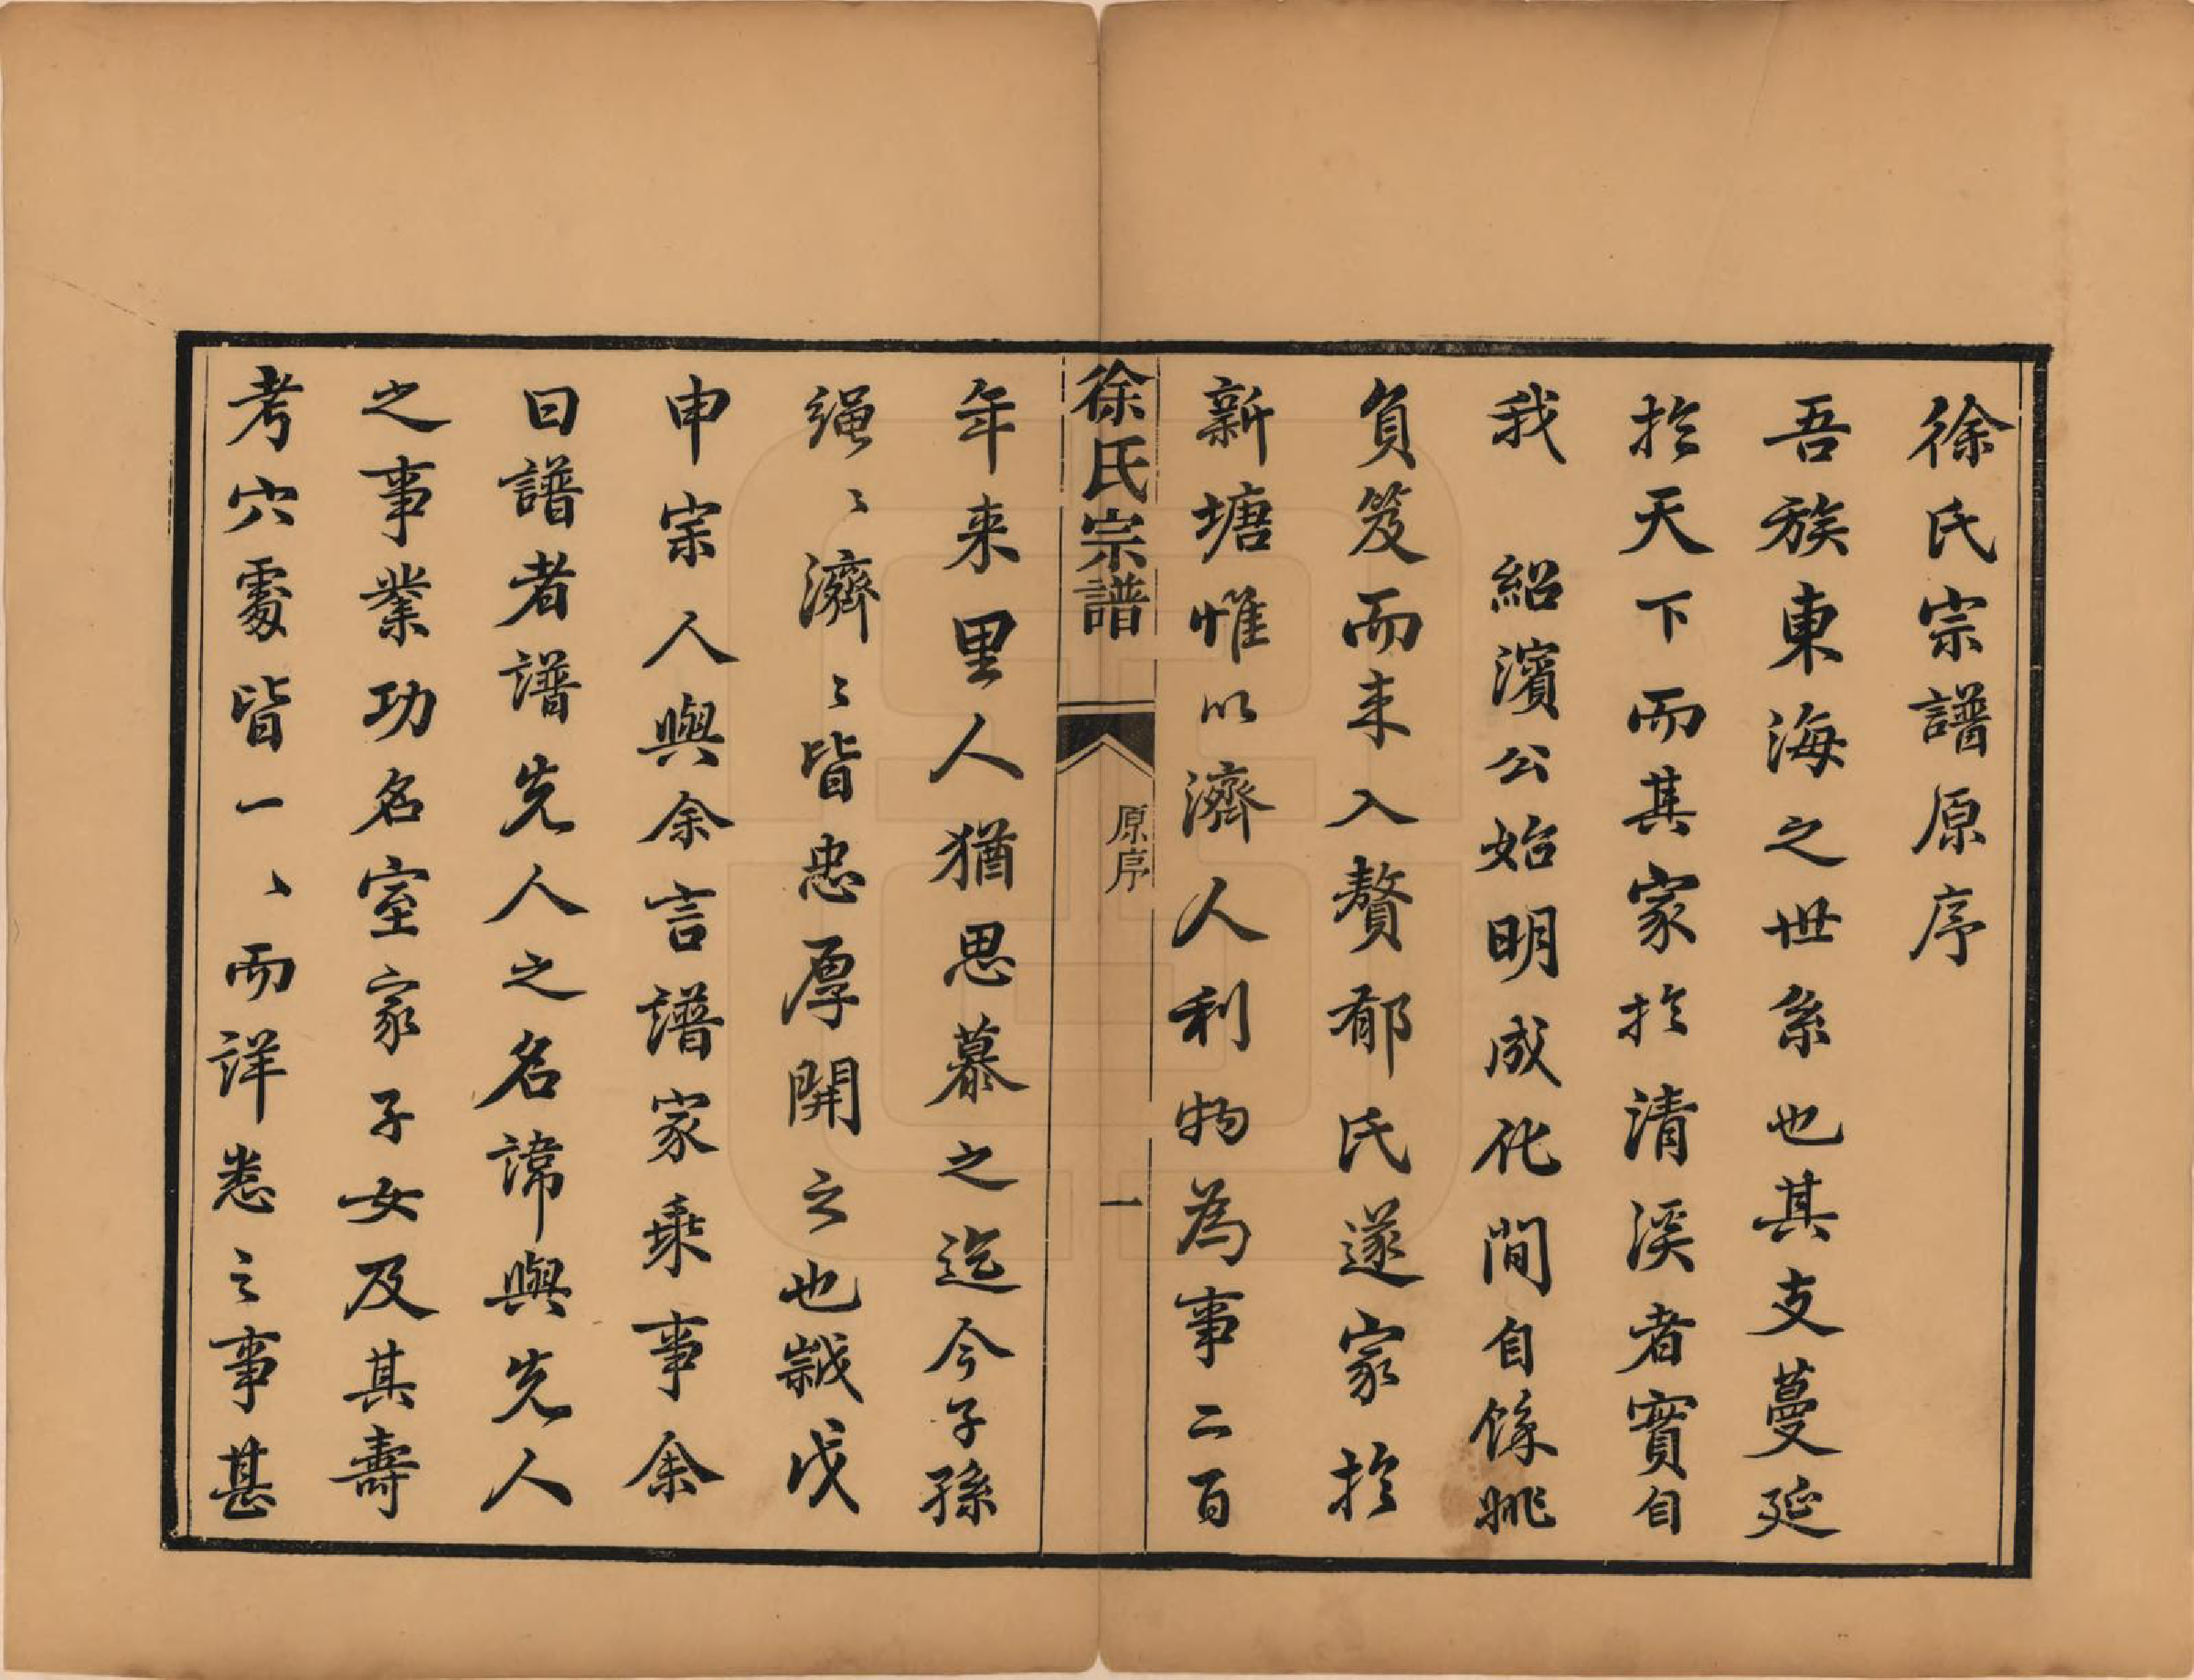 徐氏宗譜原序
吾族東海之世系也其支蔓延
於天下而其家於清溪者實自
我　紹濱公始明成化間自餘姚
負笈而来入贅郁氏遂家於
新塘惟以濟人利物為事二百
徐氏宗譜　原序　一
年来里人猶思慕之迄今子孫
繩〻濟〻皆忠厚開之也歲戊
申宗人與余言譜家乘事余
曰譜者譜先人之名諱與先人
之事業功名室家子女及其壽
考穴處皆一〻而詳悉之事甚